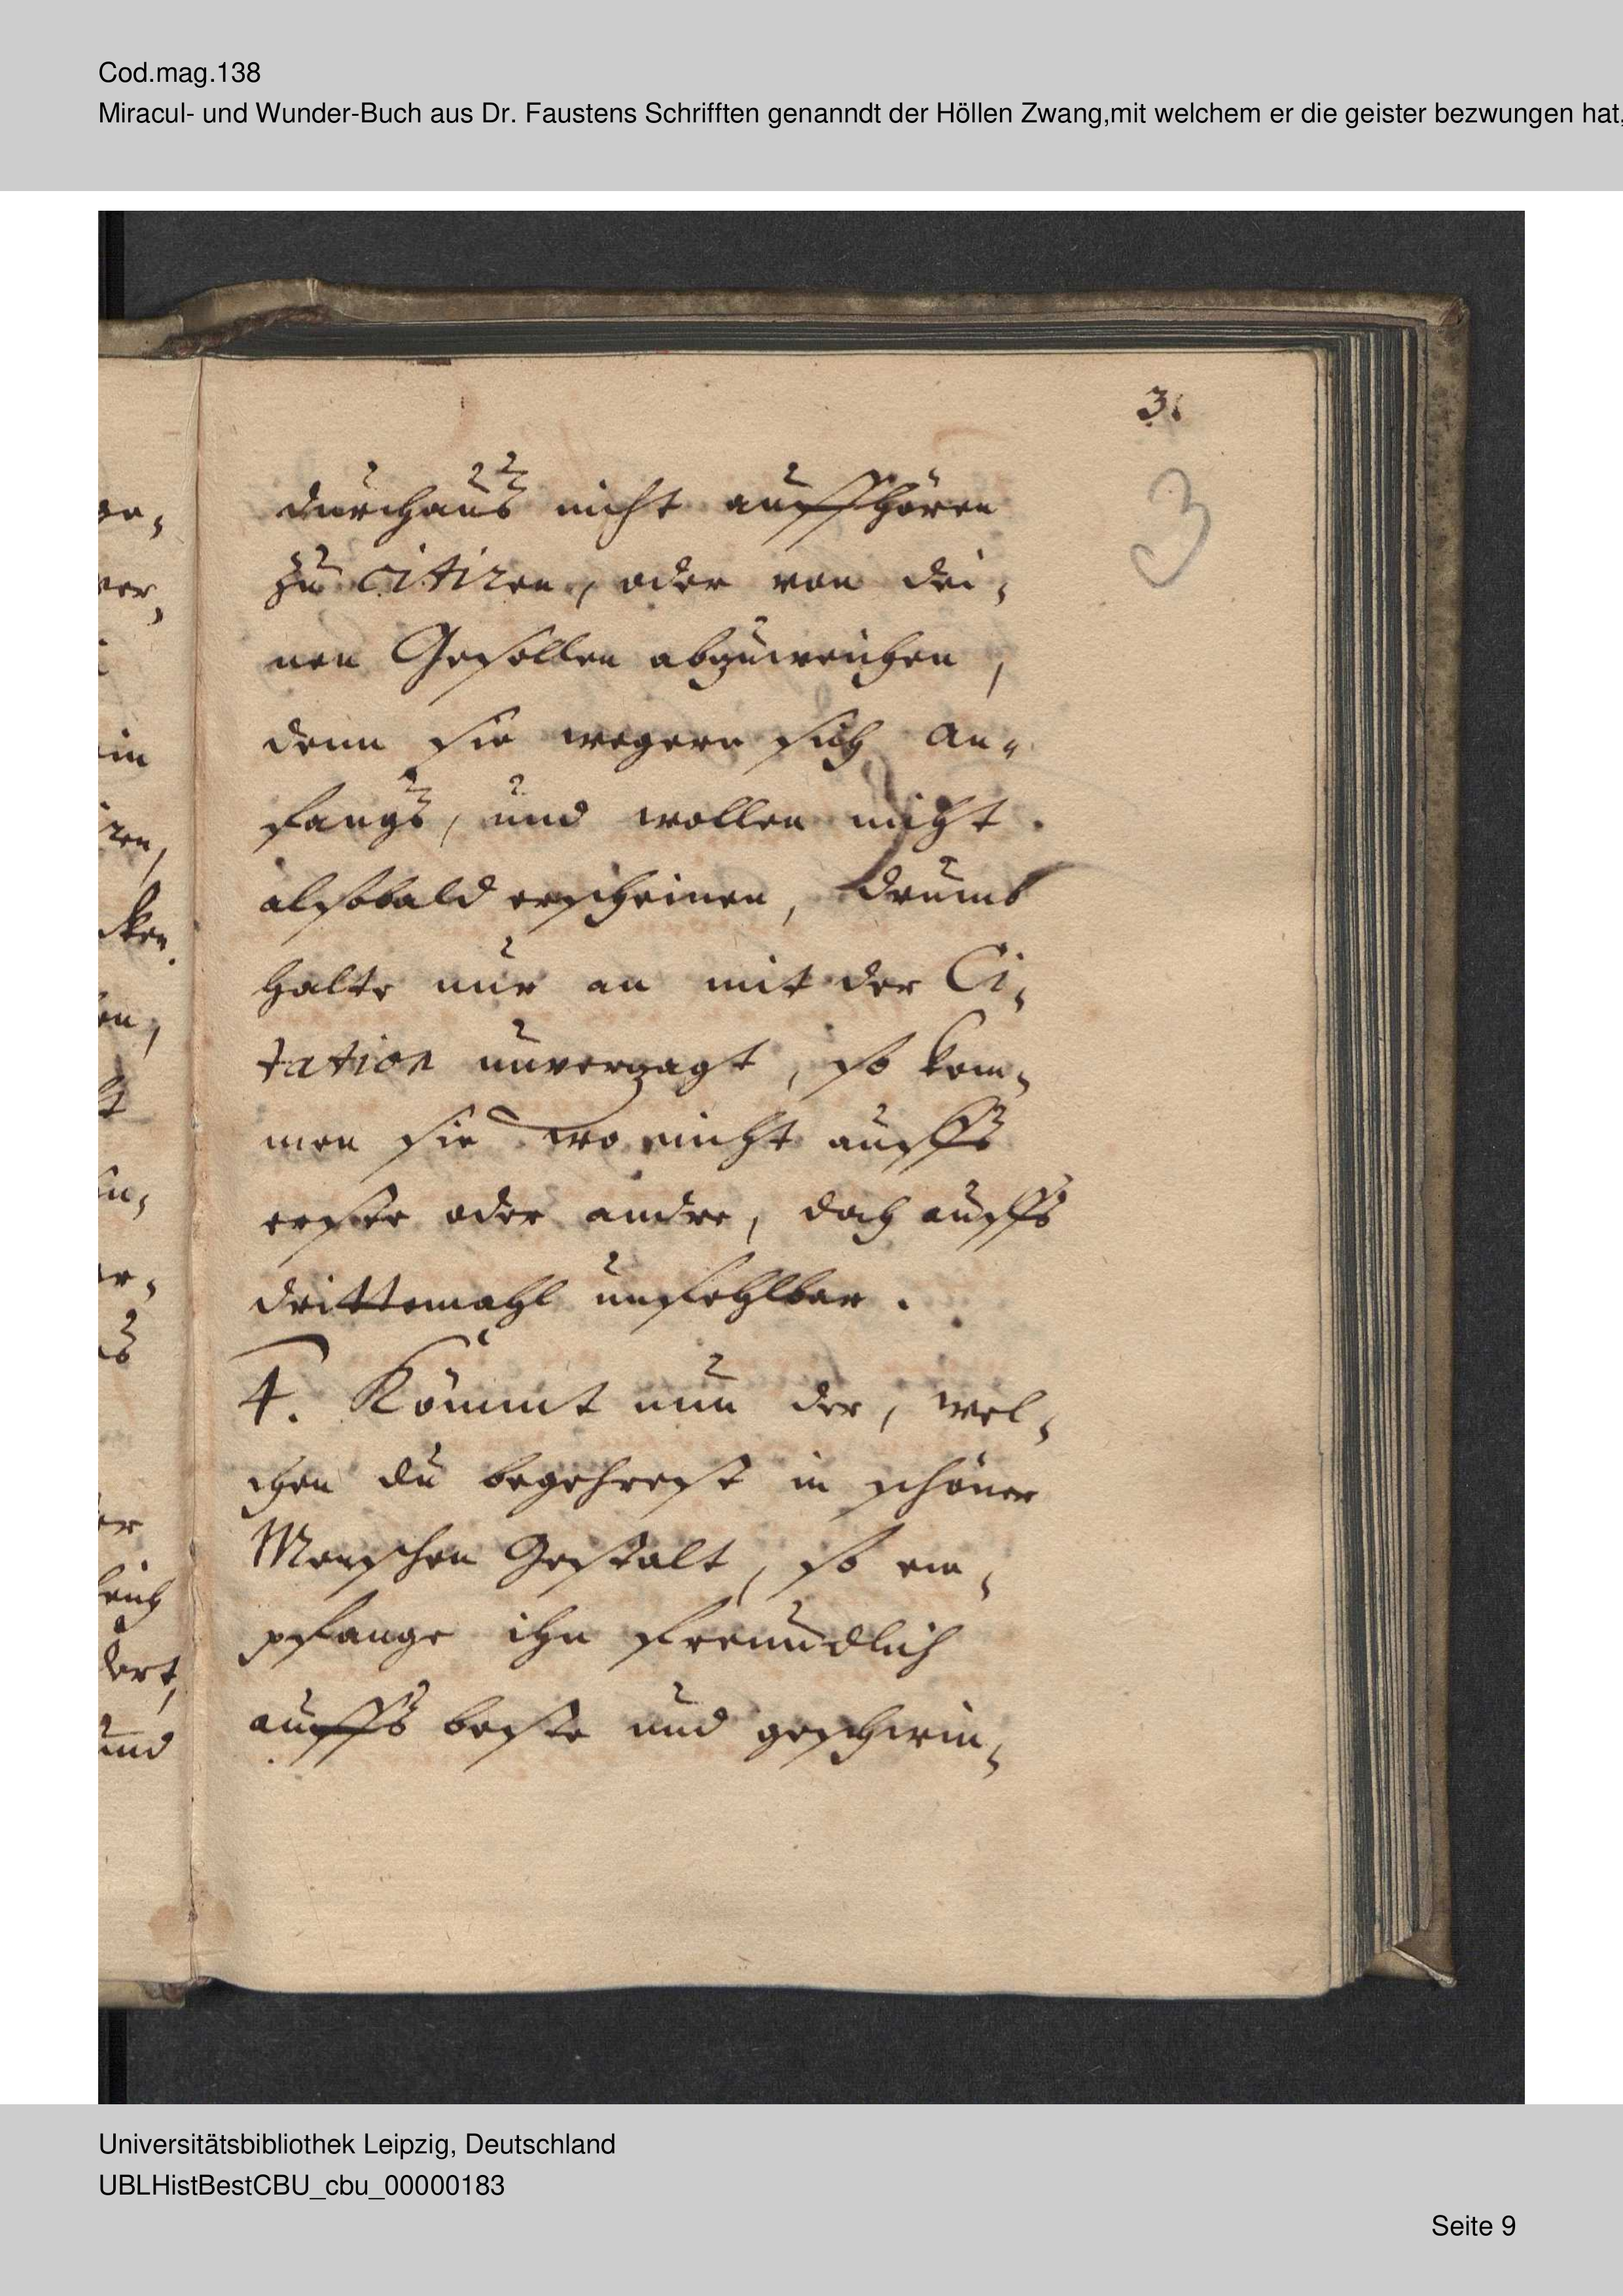 Cod.mag.138
Miracul- und Wunder-Buch aus Dr. Faustens Schrifften genanndt der Höllen Zwang,mit welchem er die geister bezwungen hat,
3.
3
durchaus nicht auffhören
zu citiren, oder von dei,
nen Gesellen abzuweichen,
denn sie wegern sich an,,
fangs, und wollen nicht.
alsobald erscheinen, drumb
halte nur an mit der Ci,
tation unverzagt, so kom,
men sie wo nicht auffs
erste oder andre, doch auffs
drittemahl unfehlbar.
4. Kömmt nun der, wel,
chen du begehrest in schöner
Menschen Gestalt, so em,
pfange ihn freundlich
auffs beste und geschwin,
ge,
ver,
in
iren,
cken.
en,
er,
er
dert,
und
Universitätsbibliothek Leipzig, Deutschland
UBLHistBestCBU_cbu_00000183
Seite 9